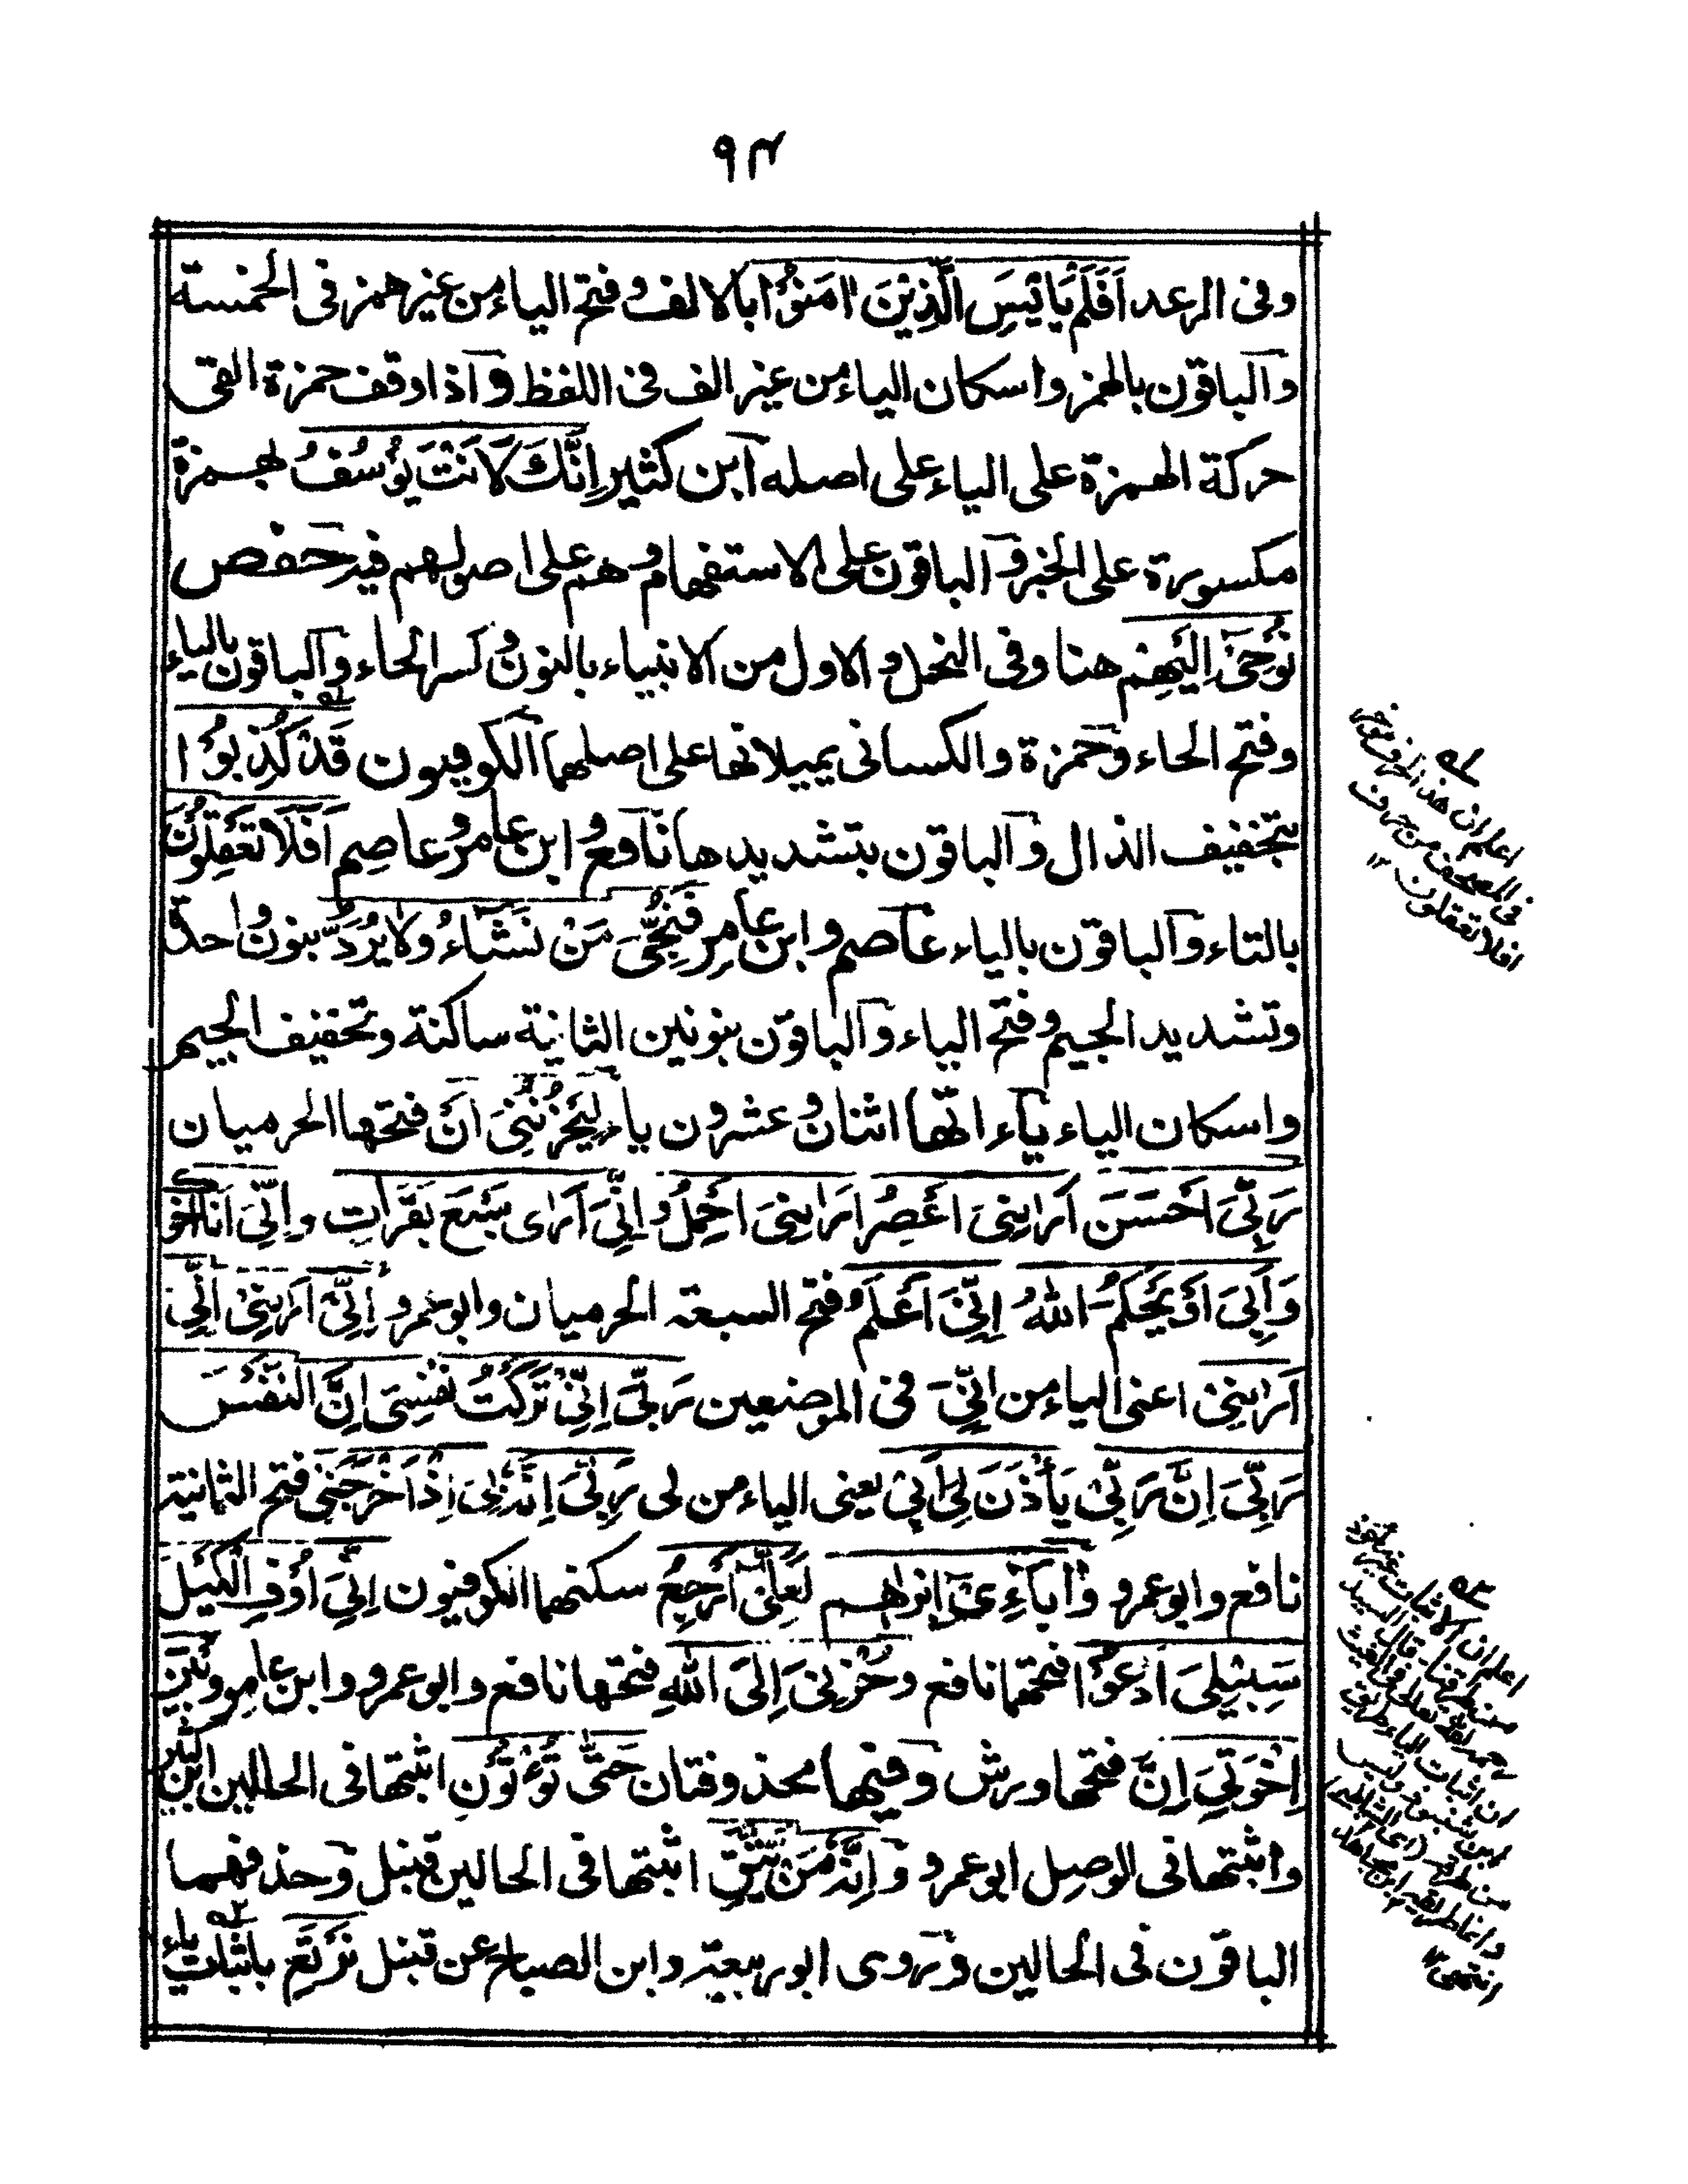 ٩٣
وفى الرعد اَفَلَمْ يَايَئِسَ الَّذِيْنَ اٰمَنُوْا بالالف وفتح الياء من غير همز فى الخمسة
والباقون بالهمز واسكان الياء من غير الف فى اللفظ واذا وقف حمزة القى
حركة الهمزة على الياء على اصله ابن كثير اِنَّكَ لَاَنْتَ يُوْسُفُ بهمزة
مكسورة على الخبر والباقون على الاستفهام وهم على اصولهم فيه حفص
نُوْحِىْٓ اِلَيْهِمْ هنا وفى النحل والاول من الانبياء بالنون وكسر الحاء والباقون بالياء
وفتح الحاء وحمزة والكسائى يميلانها على اصلهما الكوفيون قَدْ كُذِبُوْا
بتخفيف الذال والباقون بتشديدها نافع وابن عامر وعاصم اَفَلَا تَعْقِلُوْنَ
بالتاء والباقون بالياء عاصم وابن عامر فَنُجِّىَ مَنْ نَشَآءُ ولا يُرَدُّ بنون واحدة
وتشديد الجيم وفتح الياء والباقون بنونين الثانية ساكنة وتخفيف الجيم
واسكان الياء ياءاتها اثنان وعشرون ياء لَيَحْزُنُنِىَ اَنْ فتحها الحرميان
رَبِّىَ اَحْسَنَ اَرَانِىَ اَعْصِرُ اَرَانِىَ اَحْمِلُ واِنِّىَ اَرٰى سَبْعَ بَقَرَاتٍ واِنِّىَ اَنَا اَخُو
وَاَبِىَ اَوْ يَحْكُمَ اللّٰهُ اِنِّىَ اَعْلَمُ فتح السبعة الحرميان وابو عمرو اِنِّىْ اَرٰىنِىْ اِنِّىْ
اَرٰىنِىْ اعنى الياء من اِنِّىْ فى الموضعين رَبِّىَ اِنِّىْ تَرَكْتُ نَفْسِىَ اِنَّ النَّفْسَ
رَبِّىَ اِنَّ رَبِّىْ يَأْذَنَ لِىْ اَبِىْ يعنى الياء من لى رَبِّىَ اِنَّهُ بِىَ اِذْ اَخْرَجَنِىْ فتح الثمانية
نافع وابو عمرو وَاٰبَآءِىْٓ اِبْرٰهِيم لَعَلِّىْٓ اَرْجِعُ سكنهما الكوفيون اِنِّىَ اُوْفِ الْكَيْلَ
سَبِيْلِىَ اَدْعُوْا فتحهما نافع وحُزْنِىَ اِلَى اللّٰهِ فتحها نافع وابو عمرو وابن عامر وبَيْنَ
اِخْوَتِىَ اِنَّ فتحها ورش وفيها محذوفتان حَتّٰى تُؤْتُوْنِ اثبتها فى الحالين ابن كثير
واثبتها فى الوصل ابو عمرو واِنَّهٗ مَنْ يَّتَّقِ اثبتها فى الحالين قنبل وحذفهما
الباقون فى الحالين وروى ابو ربيعة وابن الصباح عن قنبل نَرْتَعِ باثبات ياء
اعلم ان هذا الحرف مؤخر
فى المصحف من حرف
افلا تعقلون ١٢
اعلم ان الاثبات غير مقروء
من طرقنا قال السيد
رحمه الله تعالى فى الغيث
ان اثبات الياء طريق
ابن شنبوذ وليس
من طرقه (اى الشاطبى)
وانما طريقه ابن مجاهد
انتهى ١٢